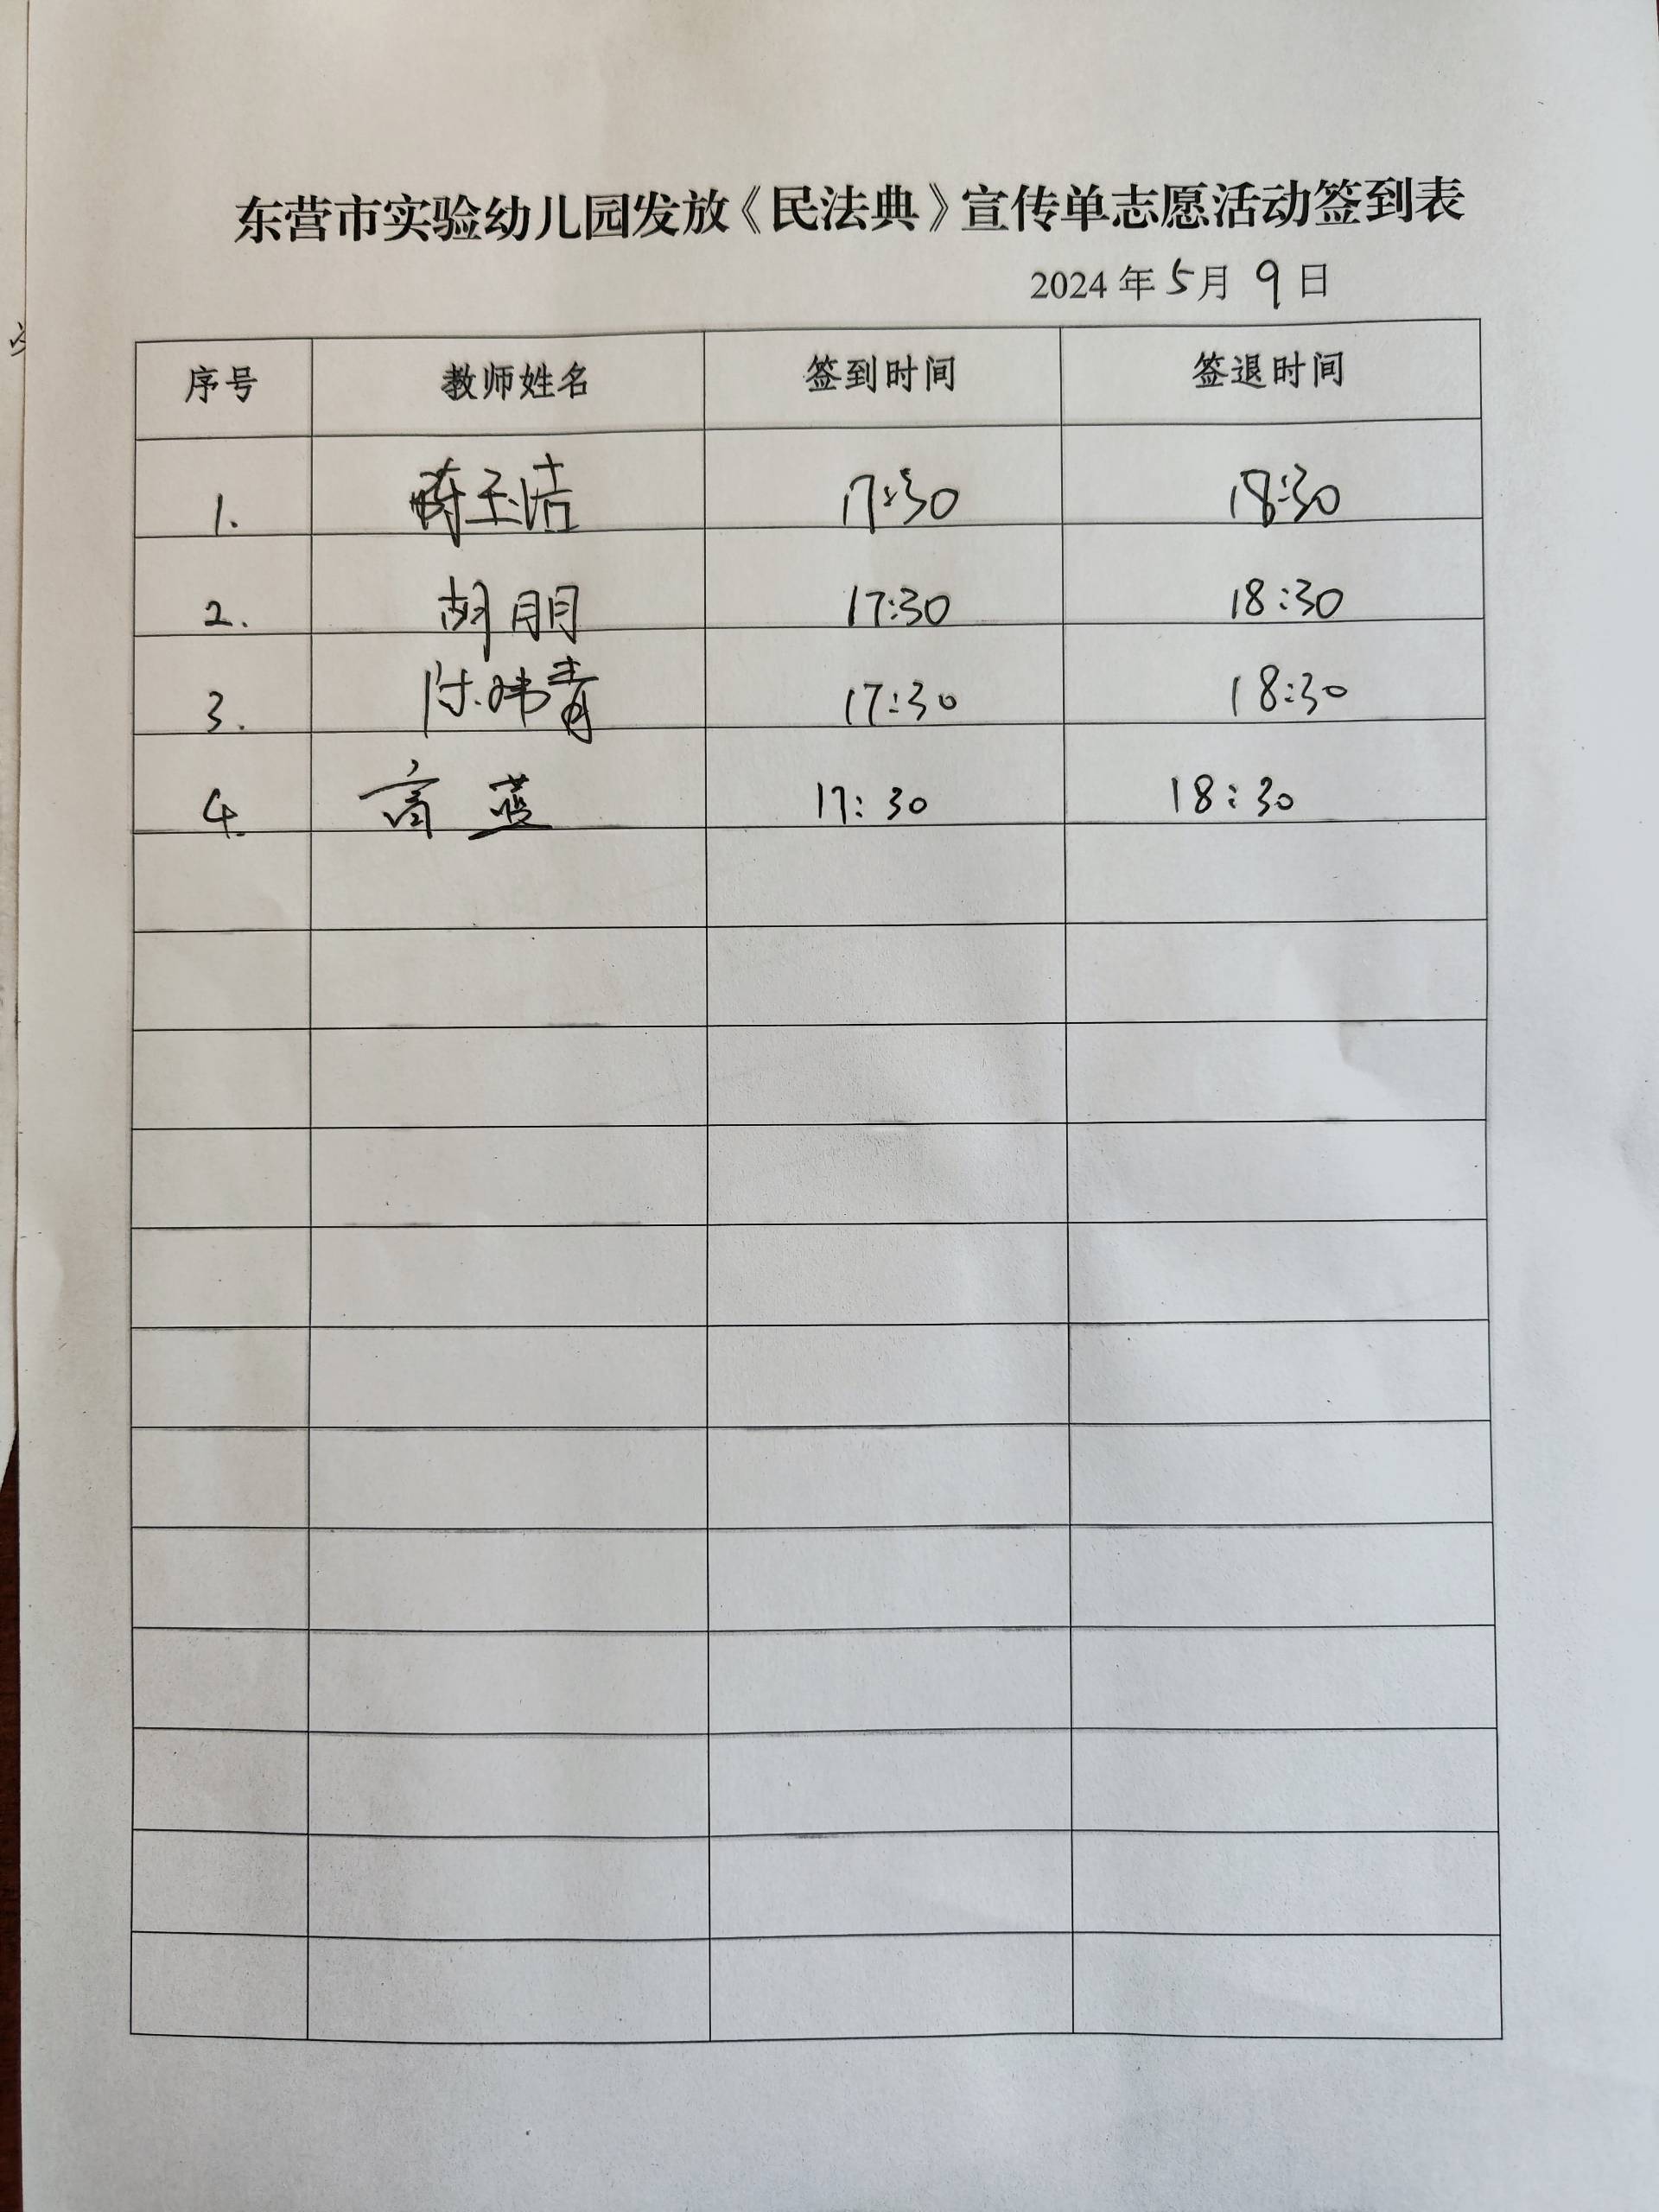 东营市实验幼儿园发放《民法典》宣传单志愿活动签到表
2024 年 5 月 9 日
序号 教师姓名 签到时间 签退时间
1. 蒋玉洁 17:30 18:30
2. 胡朋 17:30 18:30
3. 17:30 18:30
4. 高蓝 17:30 18:30